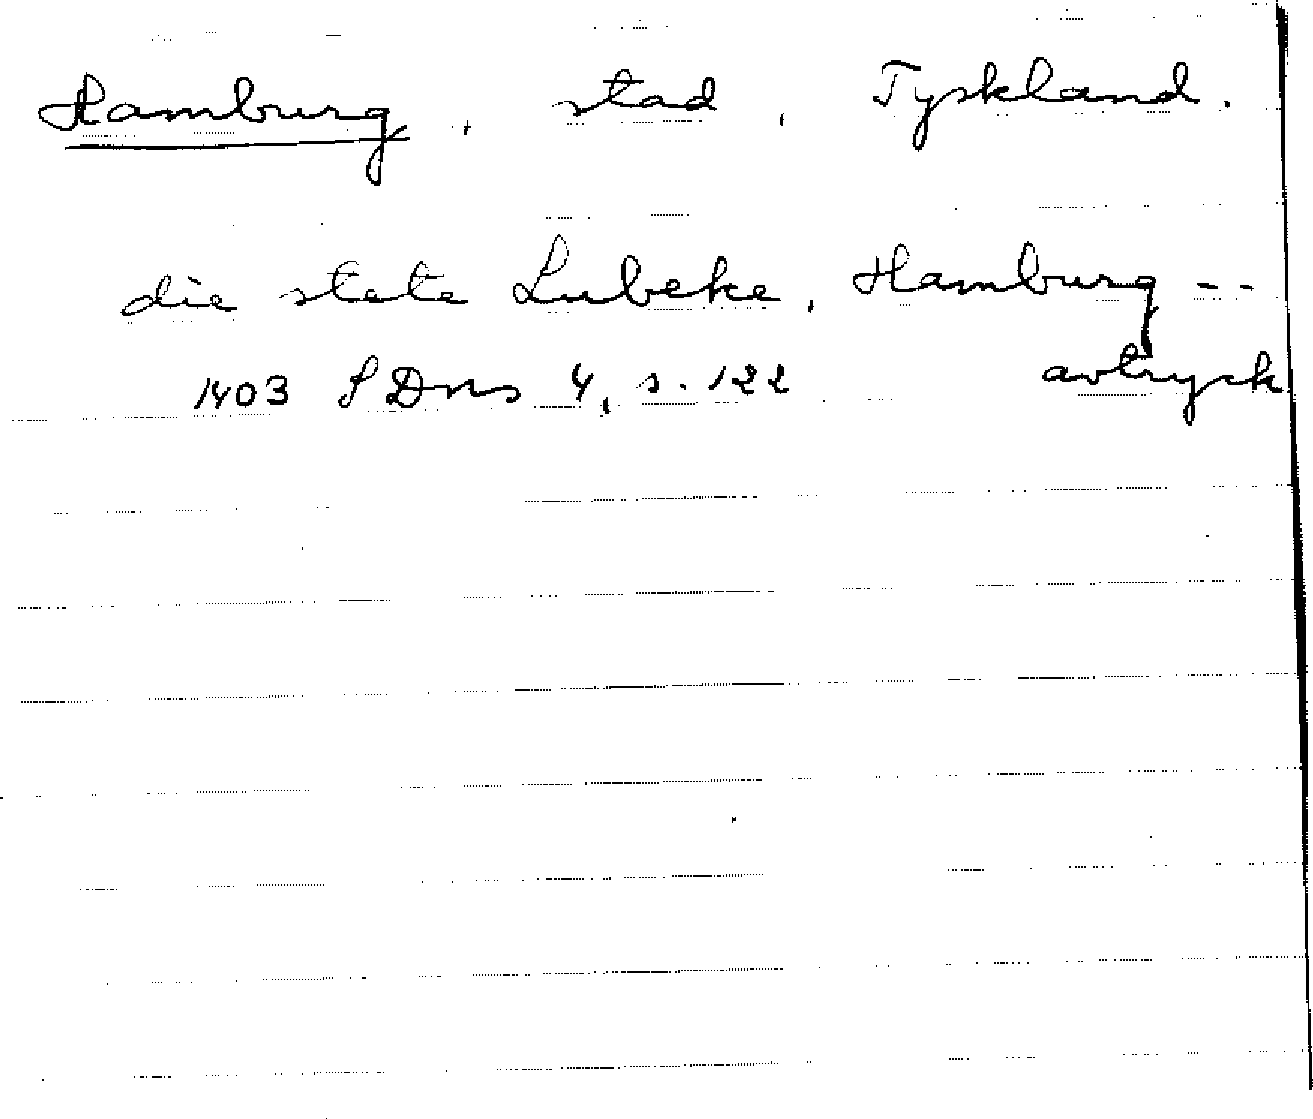 Hamburg, stad, Tyskland.
die stete Lubeke, Hamburg --
1403 SDns 4, s. 122 avtryck